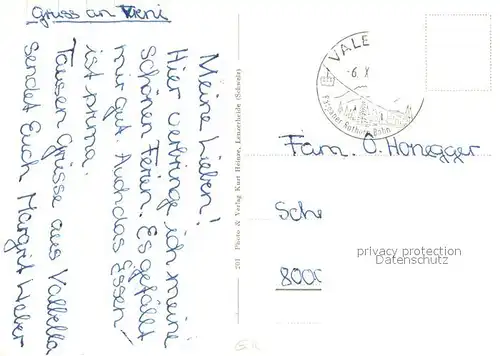 Gruss an Vreni
Meine Lieben!
Hier verbringe ich meine
schönen Ferien. Es gefällt
mir gut. Auch das Essen
ist prima.
Tausen Grüsse aus Valbella
sendet Euch Margrit Weber
201 Photo & Verlag Kurt Heiner, Lenzerheide (Schweiz)
VALB
-6. X
Parpaner Rothorn-Bahn
Fam. O. Honegger
Sch
8000
privacy protection
Datenschutz